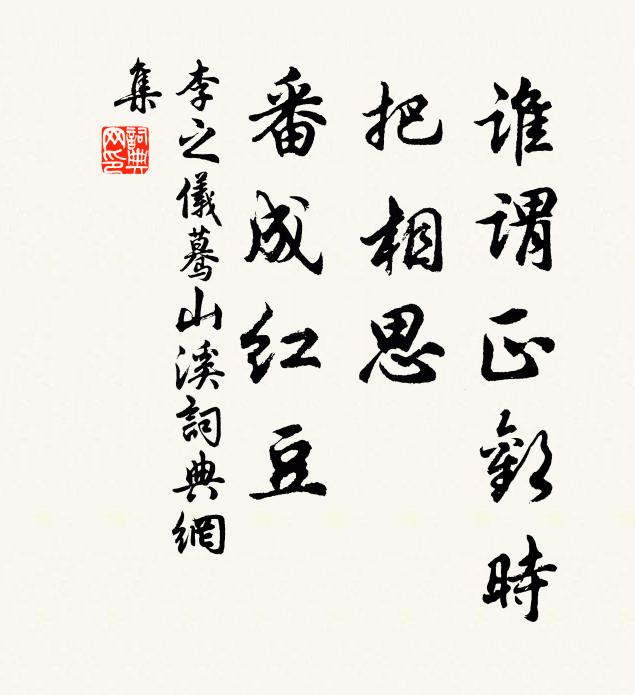 誰謂正歡時
把相思
番成紅豆
李之儀驀山溪詞典網
集
詞典網印